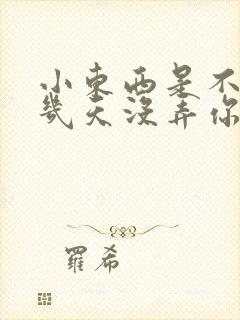 小東西是不
幾天沒弄你
羅希